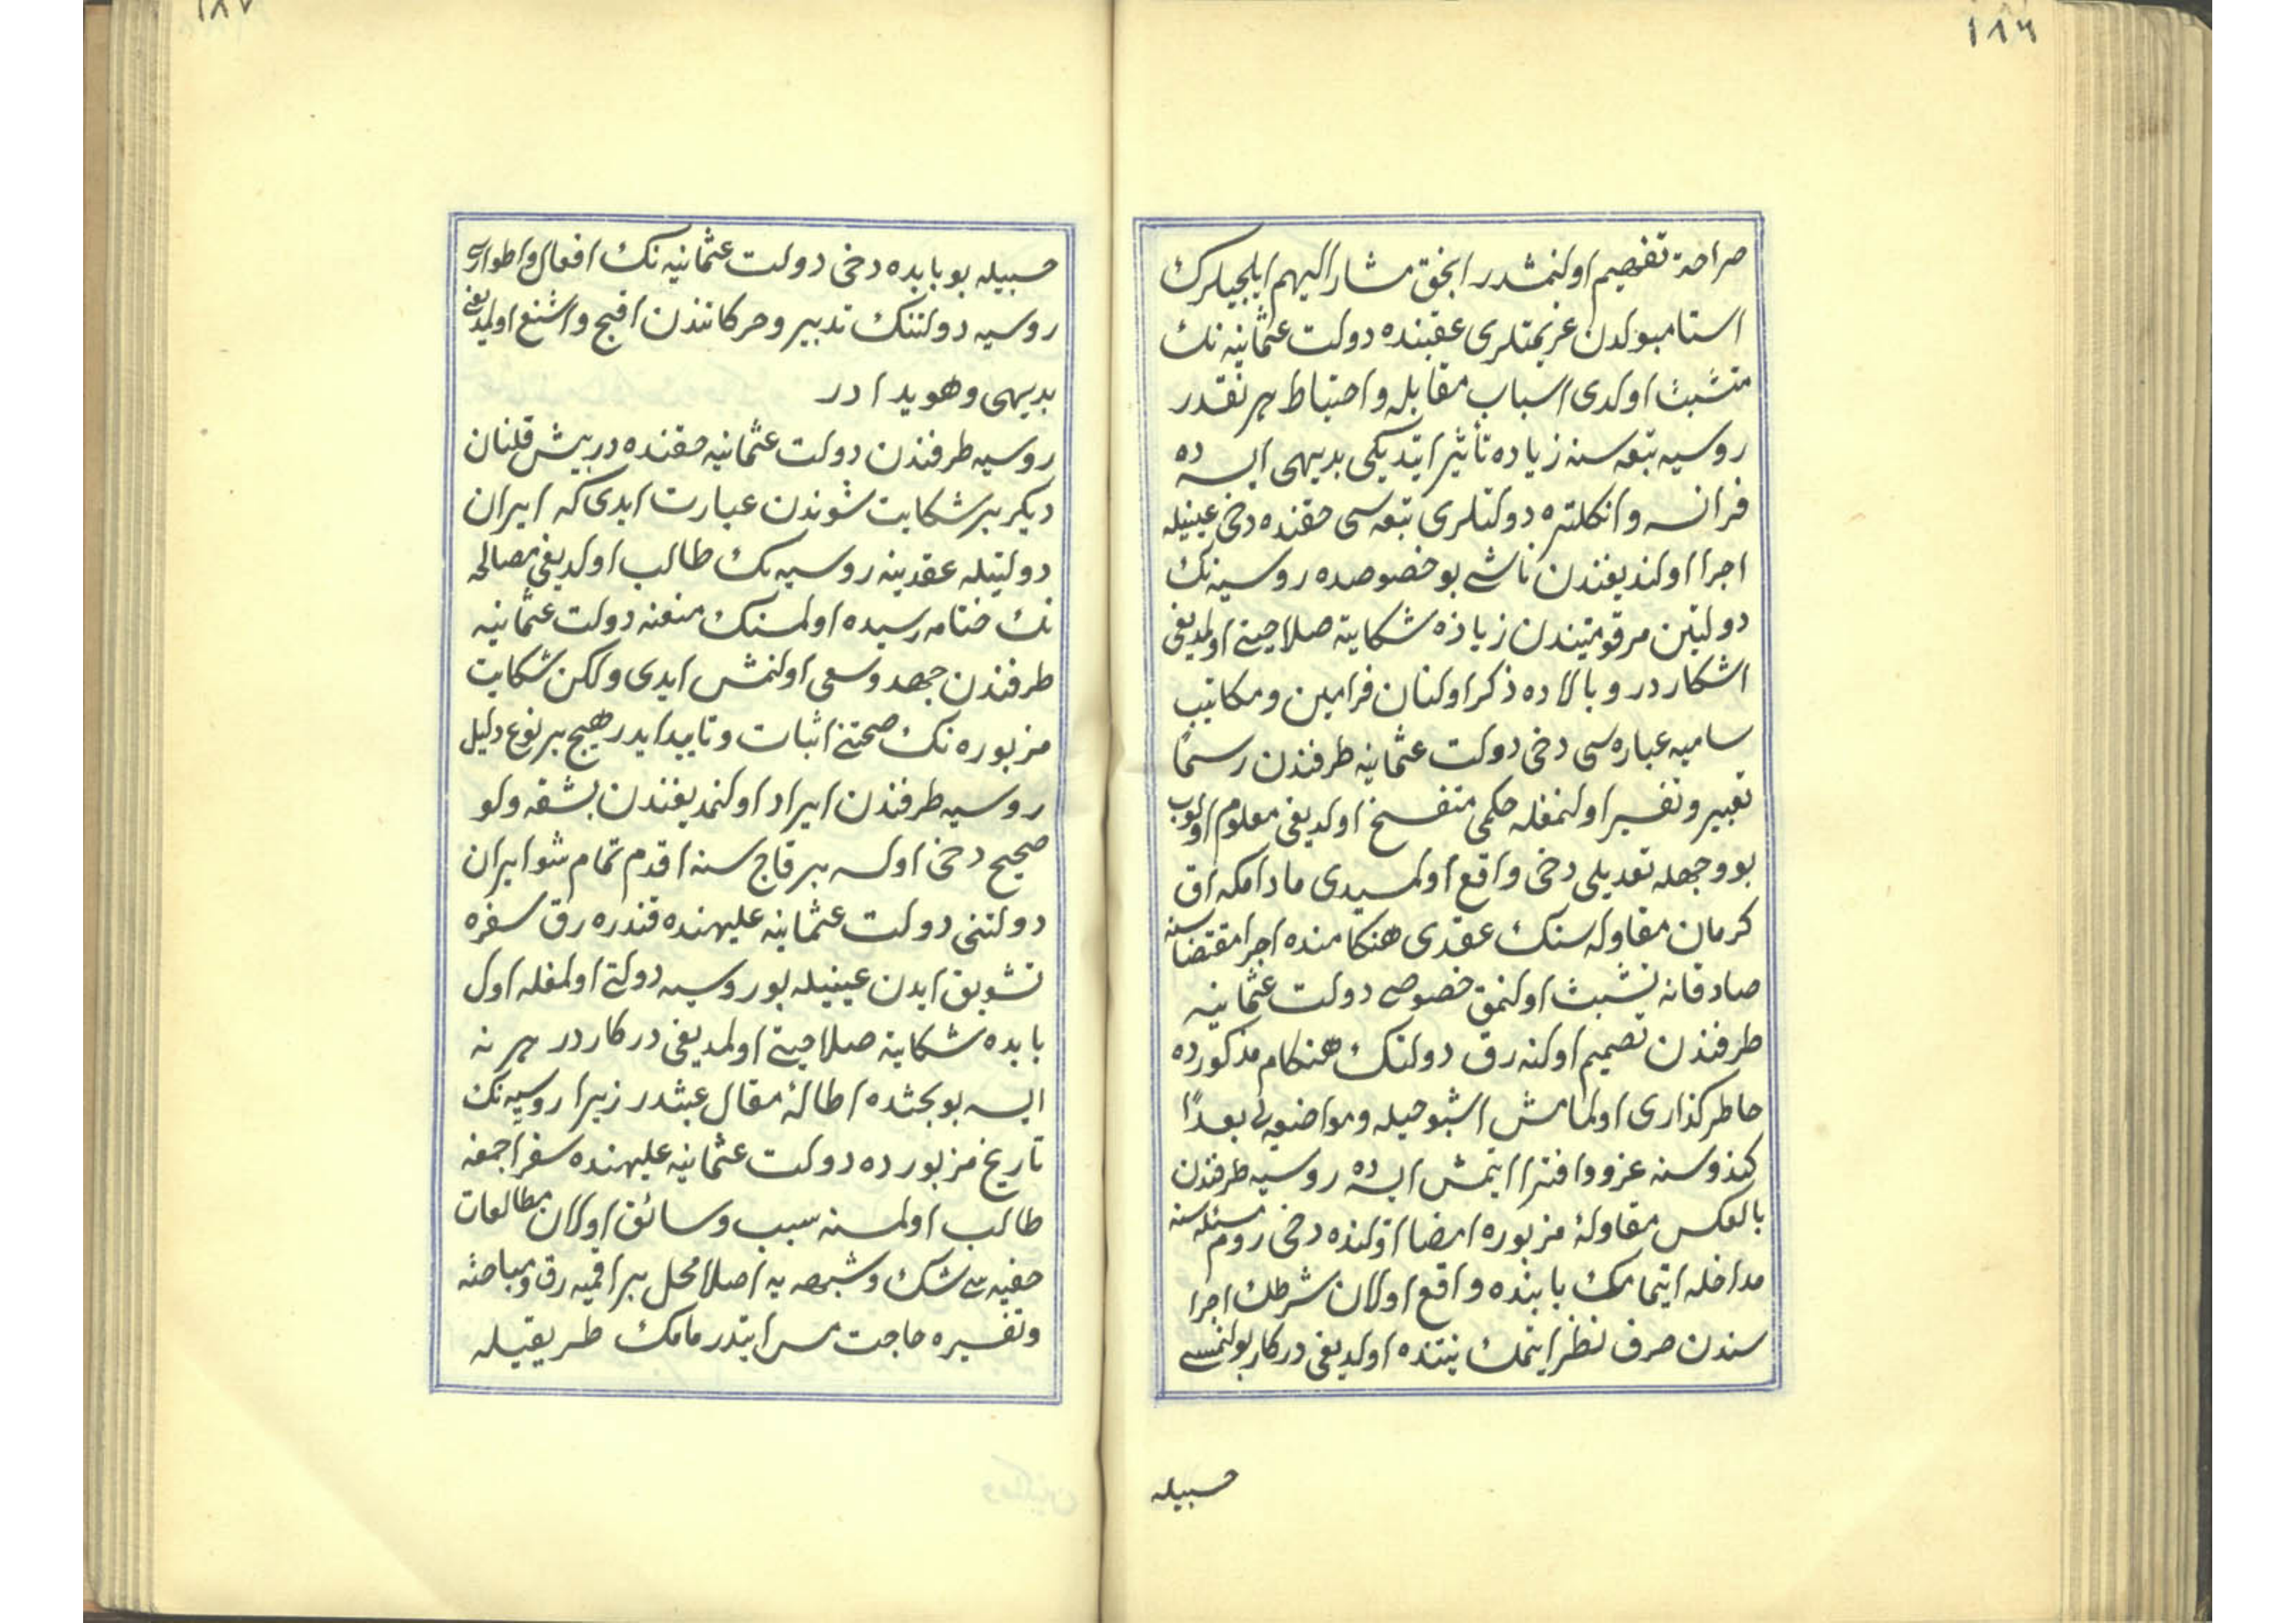 ١٨٦
صراحة تفهيم اولنمشدر انجق مشار اليهم ايلچيلرك
استامبولدن عزيمتلرى عقبنده دولت عثمانيه نك
متشبث اولدى اسباب مقابله و احتياط هر نقدر
روسيه تبعه سنه زياده تأثير ايتديكى بديهى ايسه ده
فرانسه و انكلتره دولتلرى تبعه سى حقنده دخى عينيله
اجرا اولنديغندن ناشى بو خصوصده روسيه نك
دولتين مرقومتيندن زياده شكايته صلاحيتى اولمديغى
اشكاردر و بالاده ذكر اولنان فرامين و مكاتيب
ساميه عباره سى دخى دولت عثمانيه طرفندن رسمًا
تعبير و تفسير اولنمغله حكمى منفسخ اولديغى معلوم اولوب
بو وجهله تعديلى دخى واقع اولمسيدى مادامكه اق
كرمان مقاوله سنك عقدى هنكامنده اجرا مقتضاسنه
صادقانه تشبث اولنمق خصوصى دولت عثمانيه
طرفندن تصميم اولنه رق دولتك هنكام مذكورده
خاطركذارى اولمامش اشبو حيله و مواضعه يى بعدًا
كندوسنه عزو و افترا ايتمش ايسه ده روسيه طرفندن
بالعكس مقاولهٔ مزبوره امضا اولنده دخى روم مسئله سنه
مداخله ايتمامك بابنده واقع اولان شرطك اجرا
سندن صرف نظر ايتمك نيتنده اولديغى دركار بولنمسى
حسبيله
١٨٧
حسبيله بو بابده دخى دولت عثمانيه نك افعال و اطوارى
روسيه دولتنك تدبير و حركاتندن اقبح و اشنع اولمديغى
بديهى و هويدادر
روسيه طرفندن دولت عثمانيه حقنده درپيش قلنان
ديكر بر شكايت شوندن عبارت ايدى كه ايران
دولتيله عقدينه روسيه نك طالب اولديغى مصالحه
نك ختامه رسيده اولمسنك منعنه دولت عثمانيه
طرفندن جهد و سعى اولنمش ايدى ولكن شكايت
مزبوره نك صحتنى اثبات و تاييد ايدر هيچ بر نوع دليل
روسيه طرفندن ايراد اولنمديغندن بشقه ولو
صحيح دخى اولسه بر قاچ سنه اقدم تمام شو ايران
دولتنى دولت عثمانيه عليهنده قندره رق سفره
تشويق ايدن عينيله بو روسيه دولتى اولمغله اول
بابده شكايته صلاحيتى اولمديغى دركاردر هر نه
ايسه بو بحثده اطالهٔ مقال عبثدر زيرا روسيه نك
تاريخ مزبورده دولت عثمانيه عليهنده سفر اچمغه
طالب اولمسنه سبب و سائق اولان مطالعات
خفيه سى شك و شبهه يه اصلا محل براقميه رق و مباحثه
و تفسيره حاجت مس ايتدرمامك طريقيله